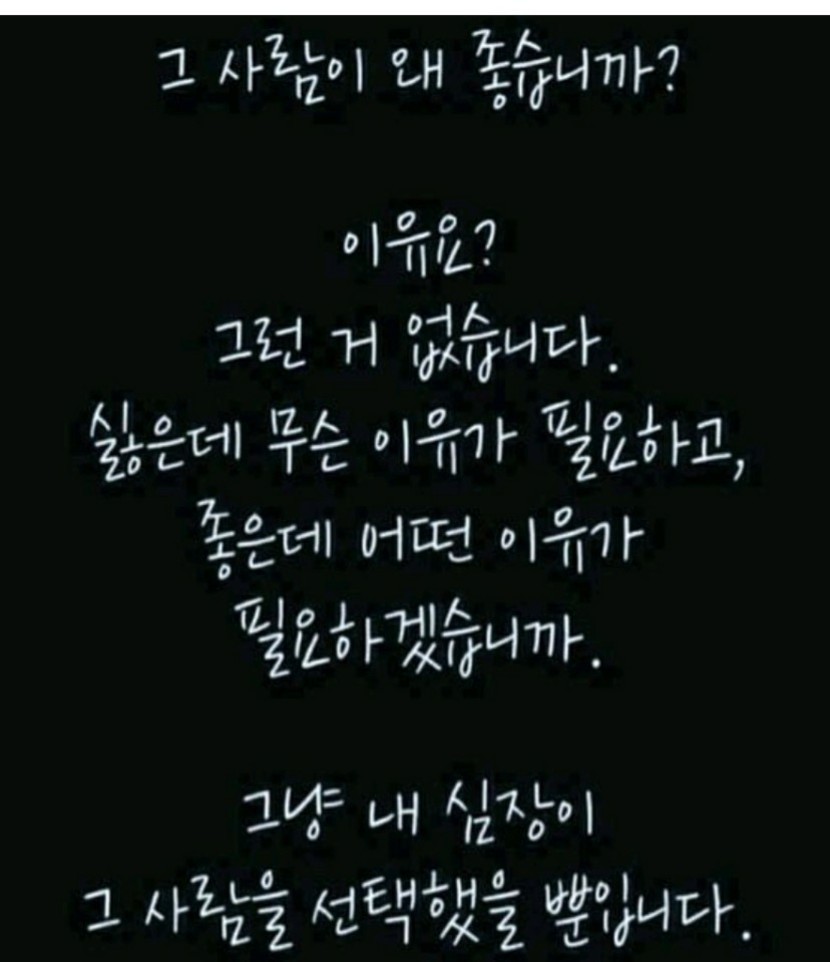 그 사람이 왜 좋습니까?
이유요?
그런 거 없습니다.
싫은데 무슨 이유가 필요하고,
좋은데 어떤 이유가
필요하겠습니까.
그냥 내 심장이
그 사람을 선택했을 뿐입니다.